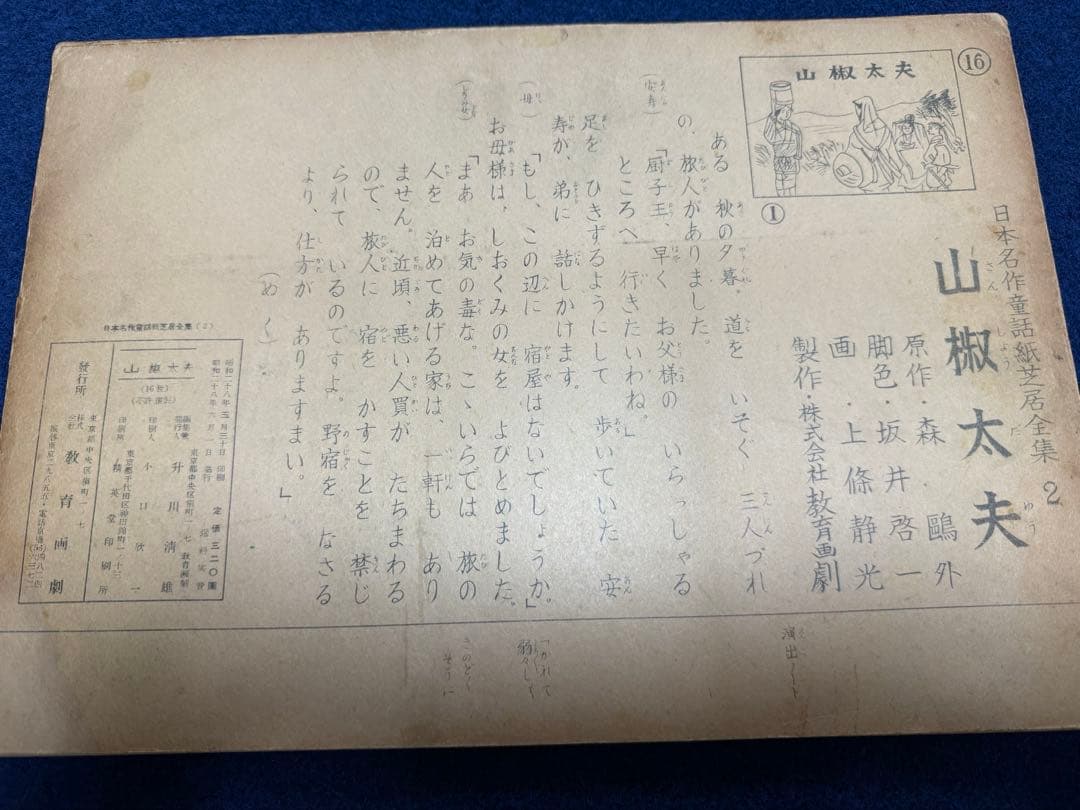 ⑯
山椒太夫
①
日本名作童話紙芝居全集 2
山椒太夫
さんしょうだゆう
原作・森 鷗外
脚色・坂井啓一
画・上條静光
製作・株式会社教育画劇
ある 秋の夕暮。道を いそぐ 三人づれ
の、旅人がありました。
(安寿)
「厨子王、早く お父様の いらっしゃる
ところへ 行きたいわね。」
足を ひきずるようにして 歩いていた 安
寿が、弟に 話しかけます。
(母)
「もし、この辺に 宿屋はないでしょうか。」
お母様は、しおくみの女を よびとめました。
「まあ お気の毒な。こゝいらでは 旅の
人を 泊めてあげる家は、一軒も あり
ません。近頃、悪い人買が たちまわる
ので、旅人に 宿を かすことを 禁じ
られて いるのですよ。野宿を なさる
より、仕方が ありますまい。」
(めくる)
演出ノート
つかれて
弱々しく
きのどく
そうに
日本名作童話紙芝居全集(2)
山椒太夫
(16枚)
昭和二十八年三月三十日 印刷
定価 三二〇圓
升川清雄
東京都中央区
印刷人 小口欣一
印刷所 精英堂印刷所
發行所
株式会社 教育画劇